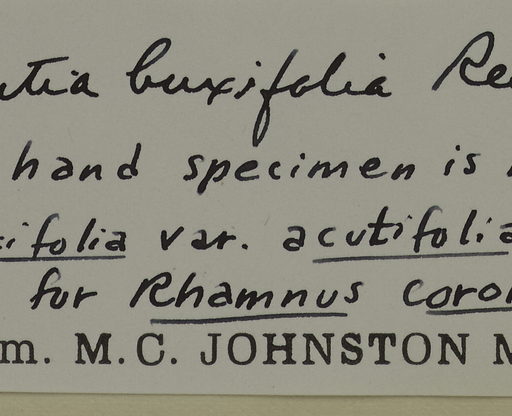 utia buxifolia Re
hand specimen is
ifolia var. acutifolia
for Rhamnus coro
m. M.C. JOHNSTON